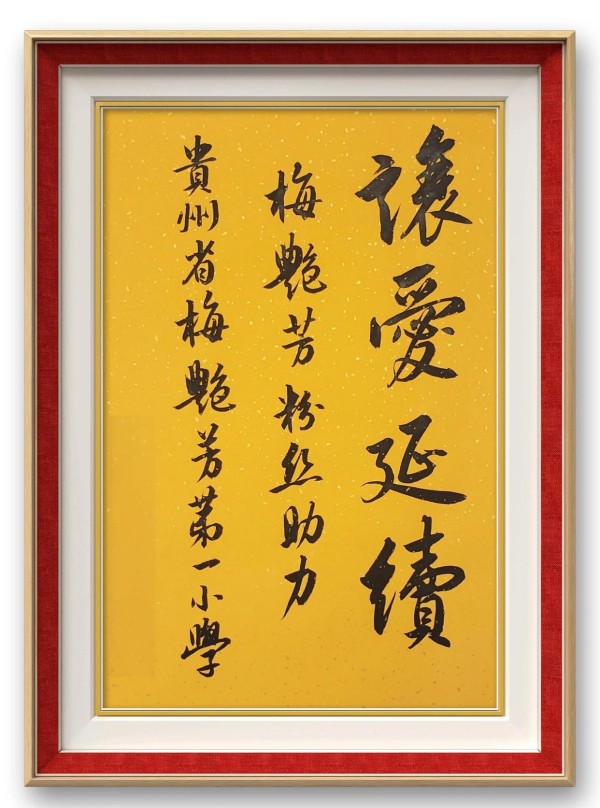 讓愛延續
梅艷芳粉丝助力
貴州省梅艷芳苐一小學